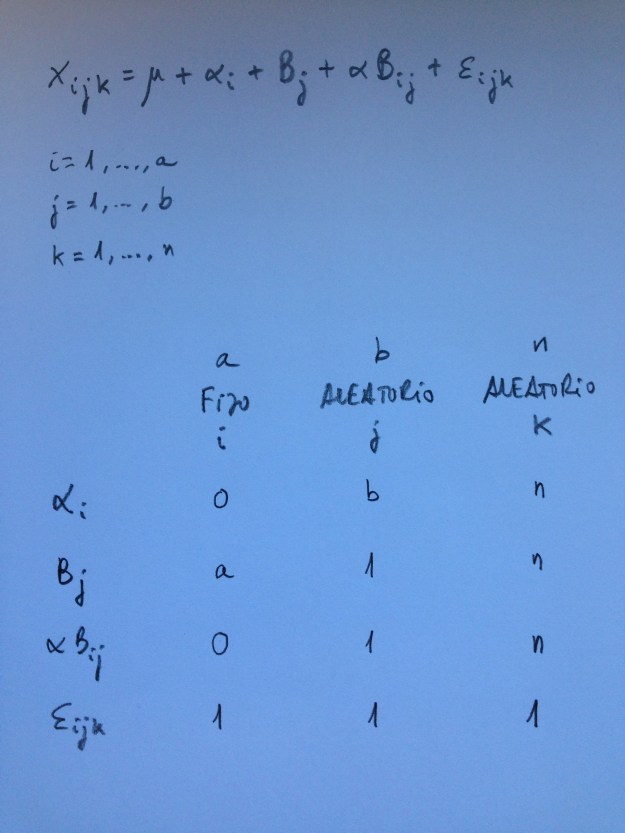 x_ijk = μ + α_i + B_j + αB_ij + ε_ijk
i = 1, ..., a
j = 1, ..., b
k = 1, ..., n
a b n
FIJO ALEATORIO ALEATORIO
i j k
α_i 0 b n
B_j a 1 n
αB_ij 0 1 n
ε_ijk 1 1 1